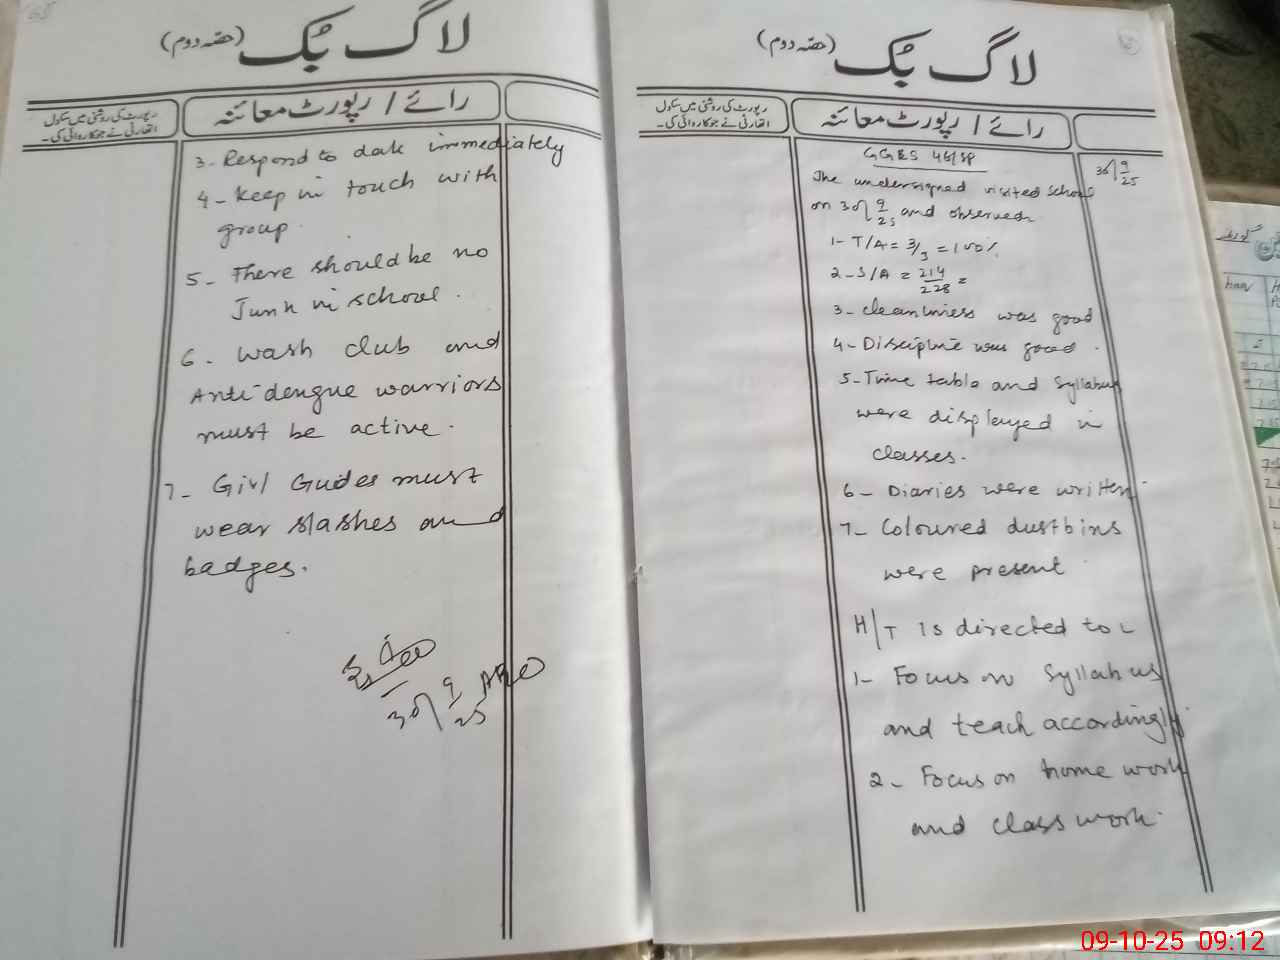 لاگ بُک (حصّہ دوم)
رائے / رپورٹ معائنہ
رپورٹ کی روشنی میں سکول
اتھارٹی نے جو کاروائی کی۔
30/9/25
GGES 46/SP
The undersigned visited school
on 30/9/25 and observed
1- T/A = 3/3 = 100%
2- S/A = 214/228 =
3- cleanliness was good
4- Discipline was good.
5- Time table and Syllabus
were displayed in
classes.
6- Diaries were written.
7- Coloured dustbins
were present
H/T is directed to :
1- Focus on Syllabus
and teach accordingly.
2- Focus on home work
and class work.
لاگ بُک (حصّہ دوم)
رائے / رپورٹ معائنہ
رپورٹ کی روشنی میں سکول
اتھارٹی نے جو کاروائی کی۔
3- Respond to dak immediately
4- Keep in touch with
group.
5- There should be no
Junk in school.
6- Wash club and
Anti dengue warriors
must be active.
7- Girl Guides must
wear slashes and
badges.
30/9/25
09-10-25 09:12